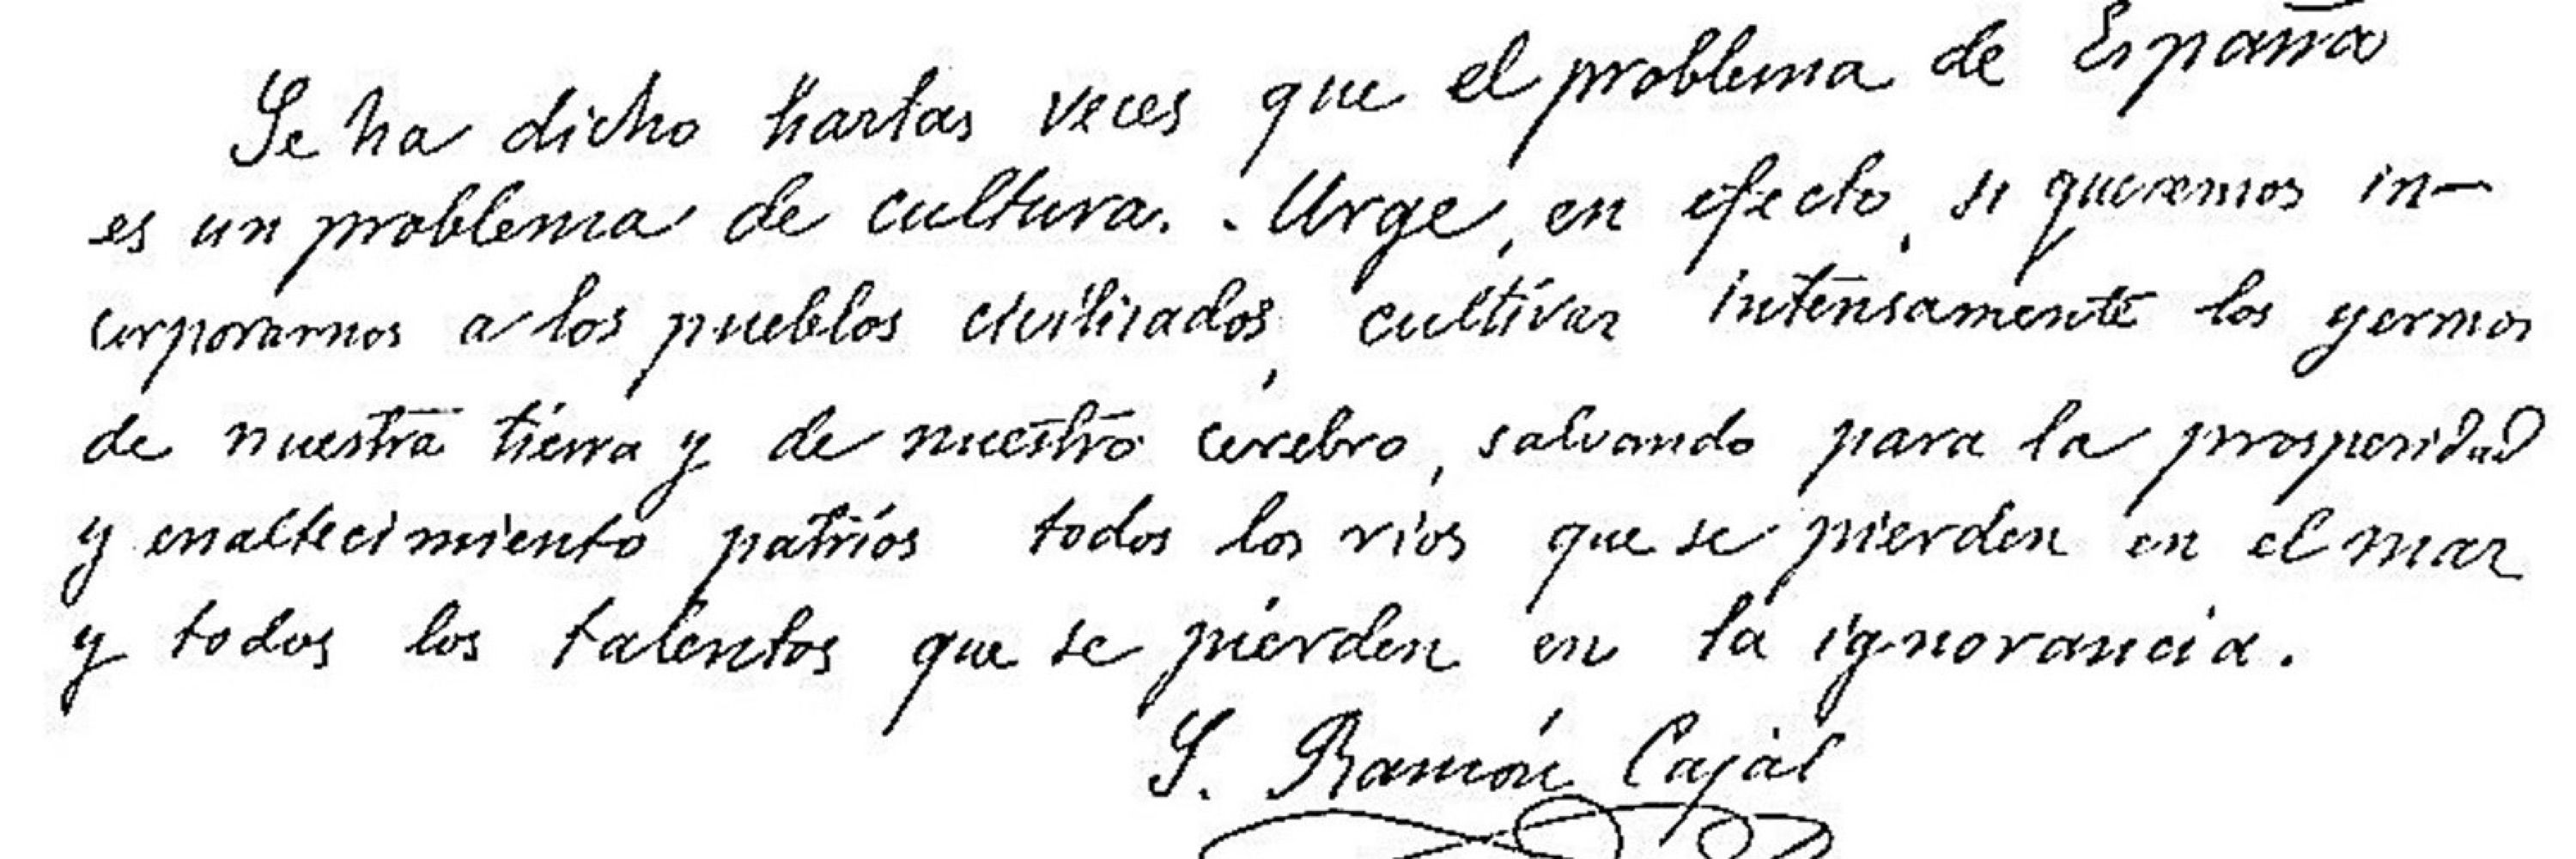 Se ha dicho hartas veces que el problema de España
es un problema de cultura. - Urge, en efecto, si queremos in-
corporarnos a los pueblos civilizados, cultivar intensamente los yermos
de nuestra tierra y de nuestro cerebro, salvando para la prosperidad
y enaltecimiento patrios todos los rios que se pierden en el mar
y todos los talentos que se pierden en la ignorancia.
S. Ramón Cajal